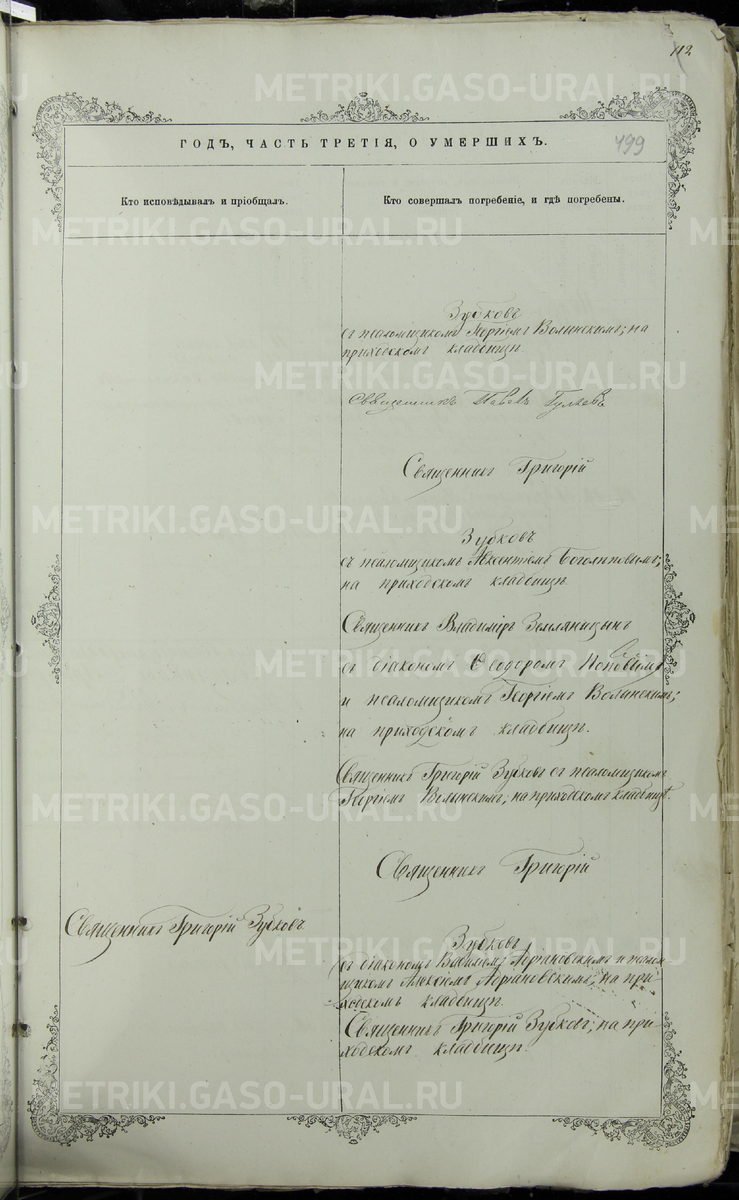 112
ГОДЪ, ЧАСТЬ ТРЕТІЯ, О УМЕРШИХЪ.
499
Кто исповѣдывалъ и пріобщалъ.
Кто совершалъ погребеніе, и гдѣ погребены.
Зубковъ
съ псаломщикомъ Георгіемъ Волынскимъ; на
приходскомъ кладбищѣ
Священникъ Павелъ
Священникъ Григорій
Зубковъ
съ псаломщикомъ
на приходскомъ кладбищѣ
Священникъ Владиміръ Земляницынъ
съ діакономъ Ѳеодоромъ Поповымъ
и псаломщикомъ Георгіемъ Волынскимъ;
на приходскомъ кладбищѣ.
Священникъ Григорій Зубковъ съ псаломщикомъ
Георгіемъ Волынскимъ; на приходскомъ кладбищѣ.
Священникъ Григорій
Священникъ Григорій Зубковъ
Зубковъ
съ діакономъ
щикомъ на при-
ходскомъ кладбищѣ.
Священникъ Григорій Зубковъ; на при-
ходскомъ кладбищѣ.
METRIKI.GASO-URAL.RU